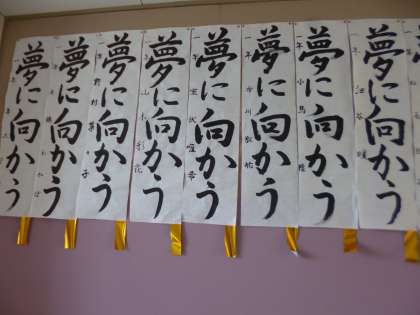 夢に向かう
夢に向かう
夢に向かう
夢に向かう
夢に向かう
夢に向かう
夢に向かう
夢に向かう